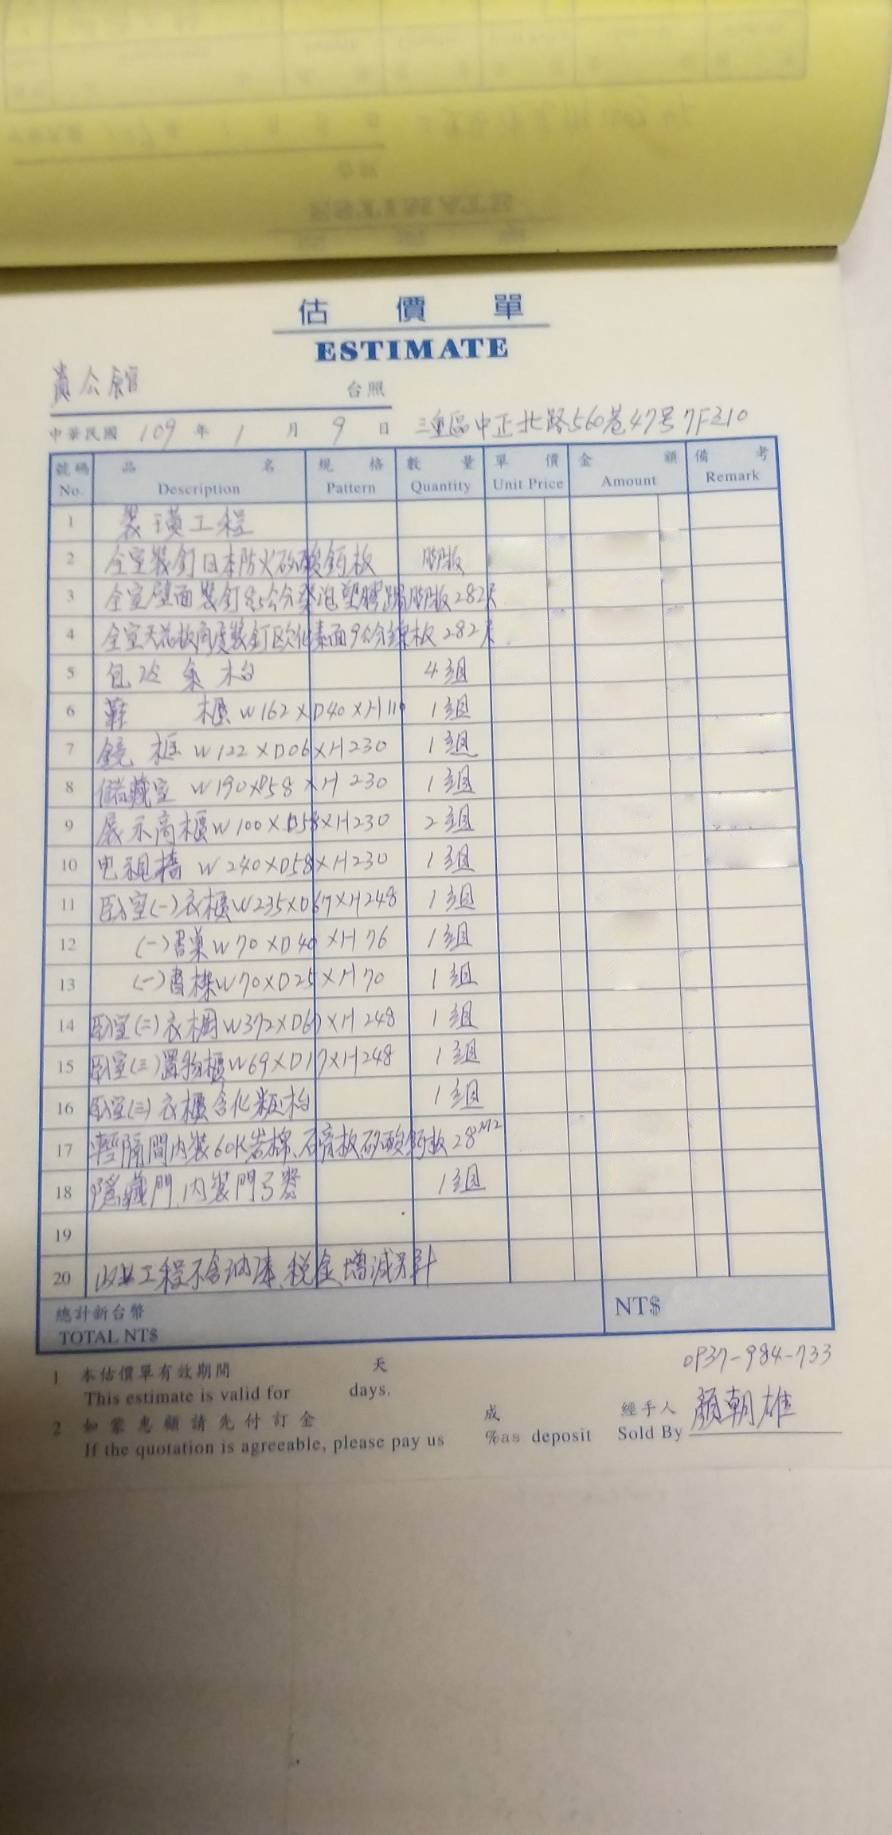 估價單
ESTIMATE
黃公館 台照
中華民國 109 年 1 月 9 日 三重區中正北路560巷47号7F之10
號碼 品名 規格 數量 單價 金額 備考
No. Description Pattern Quantity Unit Price Amount Remark
1 裝璜工程
2 全室裝釘日本防火矽酸鈣板
3 全室壁面裝釘8.5公分發泡塑膠踢腳板282尺
4 全室天花板角度裝釘歐化素面9公分線板282尺
5 包 樑 4組
6 鞋 櫃 W162×D40×H110 1組
7 鏡框 W122×D06×H230 1組
8 儲藏室 W190×D58×H230 1組
9 展示高櫃W100×D58×H230 2組
10 电視牆 W240×D58×H230 1組
11 臥室(一)衣櫃W235×D67×H248 1組
12 (一)書桌W70×D40×H76 1組
13 (一)書櫃W70×D25×H70 1組
14 臥室(二)衣櫥W372×D67×H248 1組
15 臥室(三)置物櫃W69×D17×H248 1組
16 臥室(三)衣櫃含化粧台 1組
17 輕隔間內裝60K岩棉、石膏板矽酸鈣板 28M2
18 隱藏門、內裝門弓器 1組
19
20 以上工程不含油漆、稅金、增減另計
總計新台幣
TOTAL NT$ NT$
0937-984-733
1 本估價單有效期間 天
This estimate is valid for days.
2 如蒙惠顧請先付訂金 成 經手人 顏朝雄
If the quotation is agreeable, please pay us %as deposit Sold By